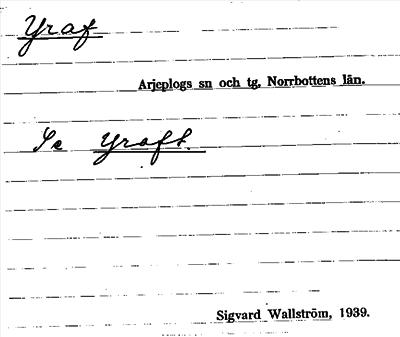 Yraf
Arjeplogs sn och tg. Norrbottens län.
Se Yraft.
Sigvard Wallström, 1939.